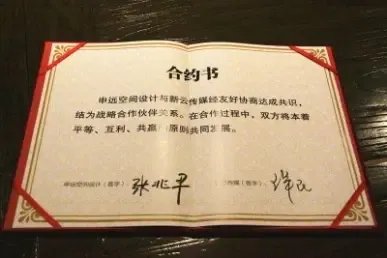 合约书
申远空间设计与新云传媒经友好协商达成共识，
结为战略合作伙伴关系。在合作过程中，双方将本着
平等、互利、共赢 原则共同发展。
申远空间设计（签字） 张兆平
传媒（签字）：